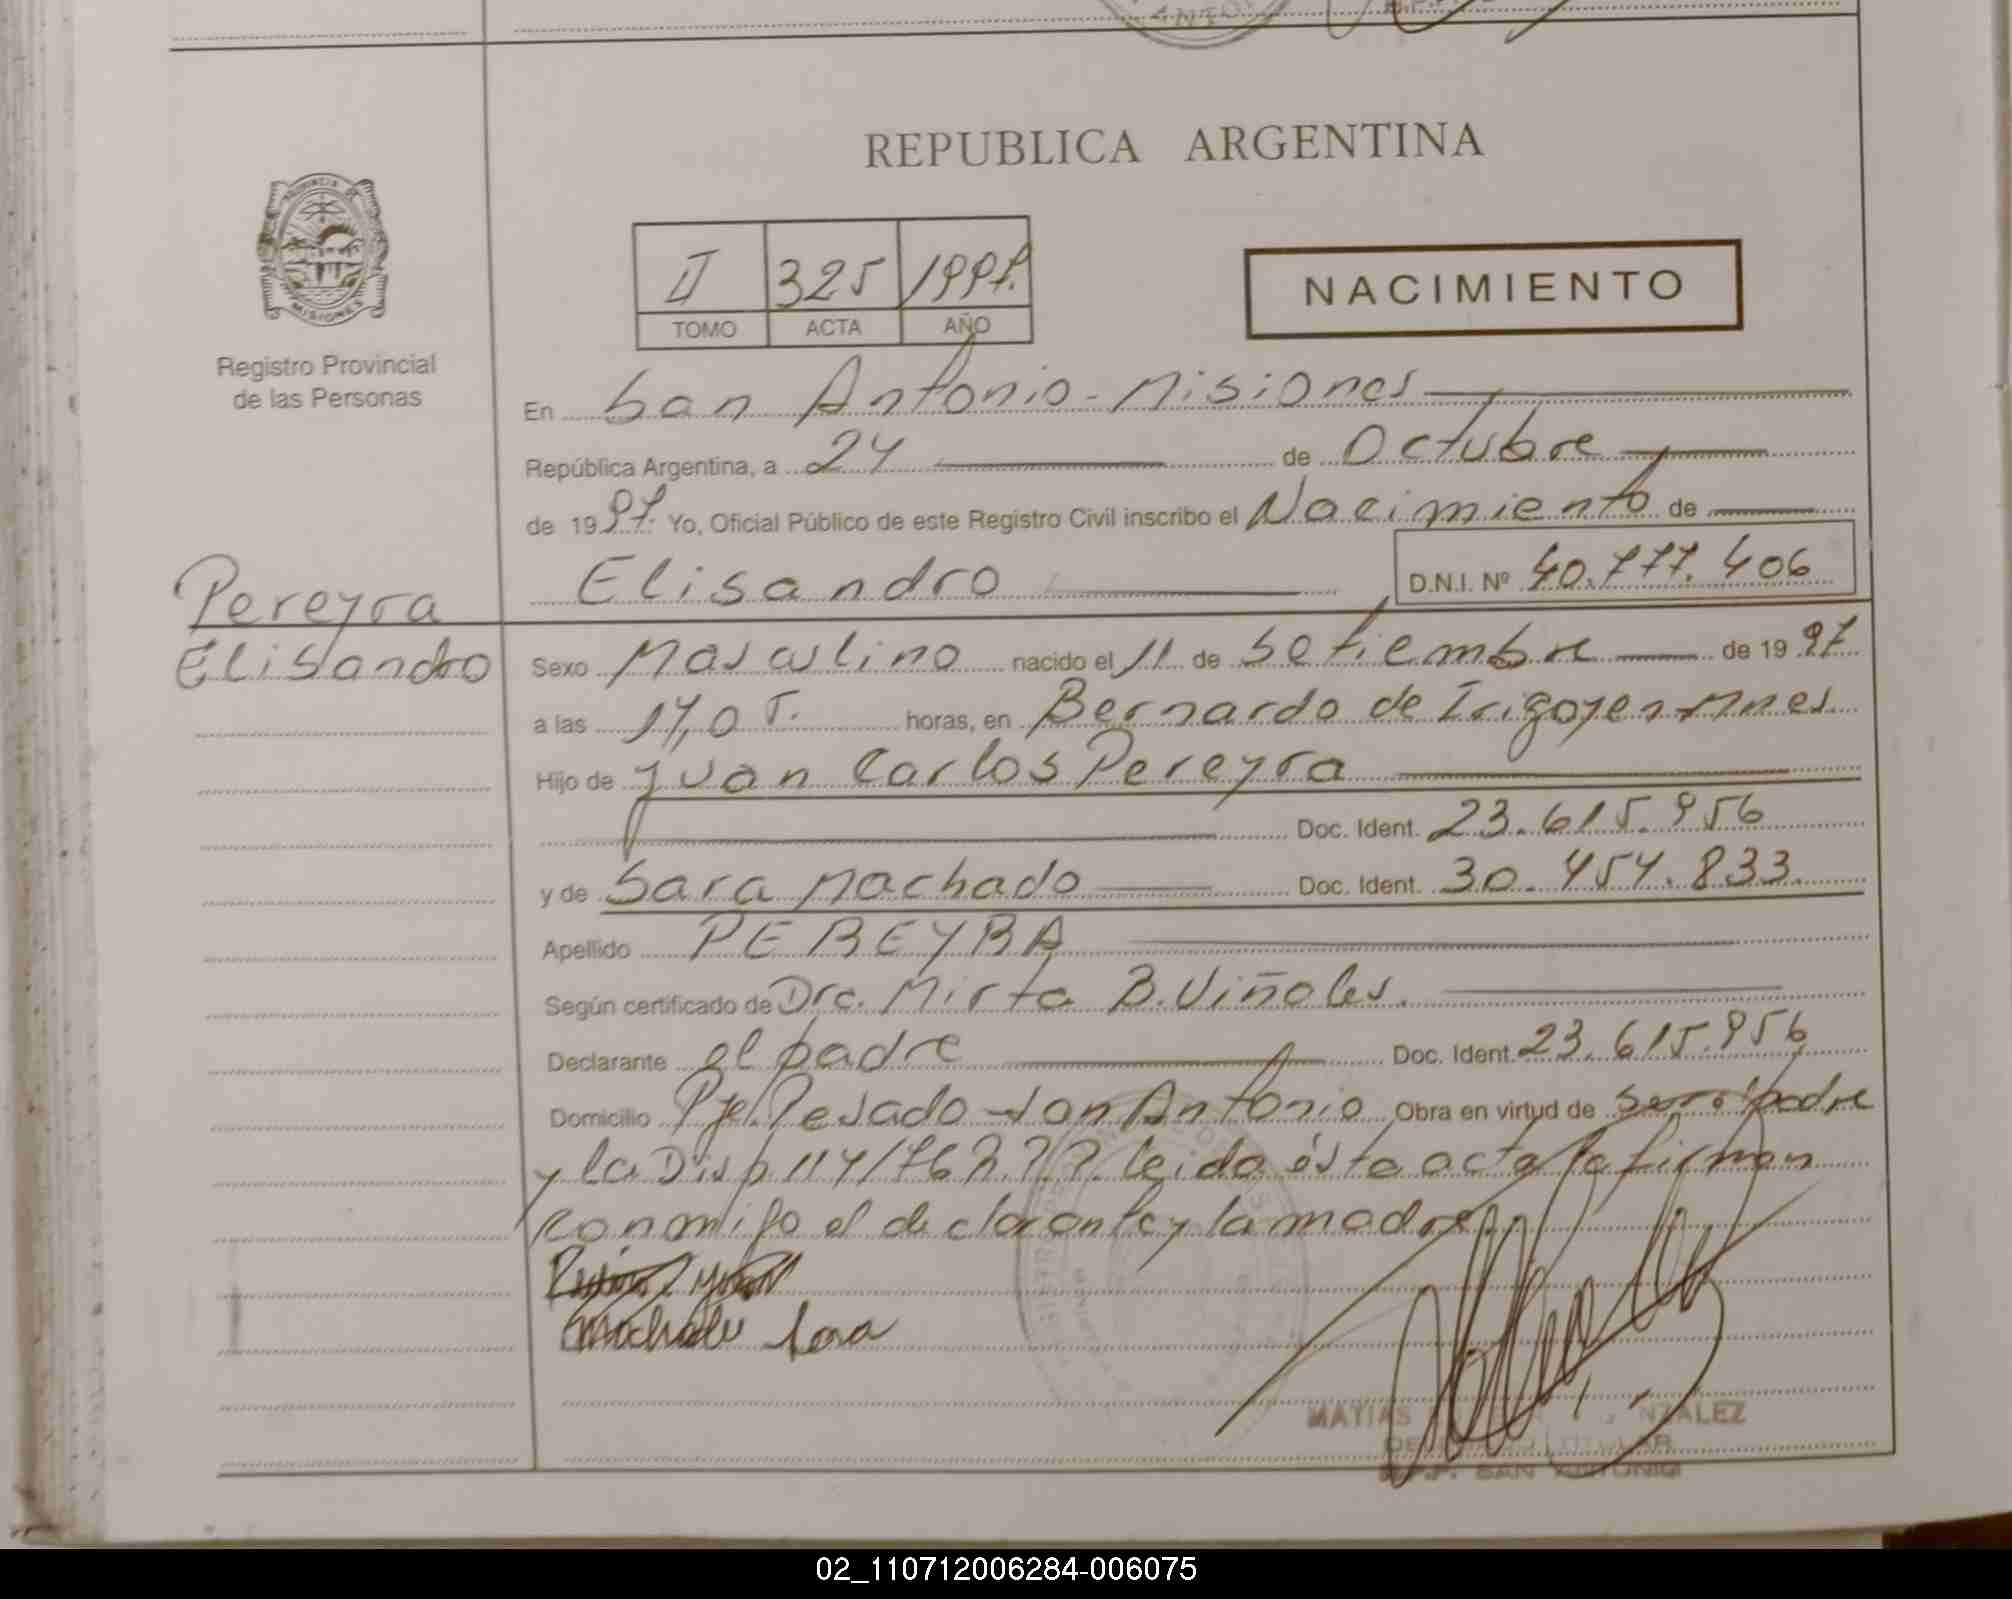 REPUBLICA ARGENTINA
PROVINCIA DE
MISIONES
Registro Provincial
de las Personas
II 325 1997.
TOMO ACTA AÑO
NACIMIENTO
En San Antonio - Misiones
República Argentina, a 24 de Octubre
de 1997. Yo, Oficial Público de este Registro Civil inscribo el Nacimiento de
Elisandro D.N.I. Nº 40.777.406
Pereyra
Elisandro
Sexo Masculino nacido el 11 de Setiembre de 1997
a las 14,05. horas, en Bernardo de Irigoyen - Mnes.
Hijo de Juan Carlos Pereyra
Doc. Ident. 23.615.956
y de Sara Machado Doc. Ident. 30.454.833.
Apellido PEREYRA
Según certificado de Dra. Mirta B. Viñoles.
Declarante el padre Doc. Ident. 23.615.956
Domicilio Pje. Pesado - San Antonio Obra en virtud de ser el padre
y la Disp 114/76 leida ésta acta la firman
conmigo el declarante y la madre
Machado Sara
MATIAS
SAN ANTONIO
02_110712006284-006075